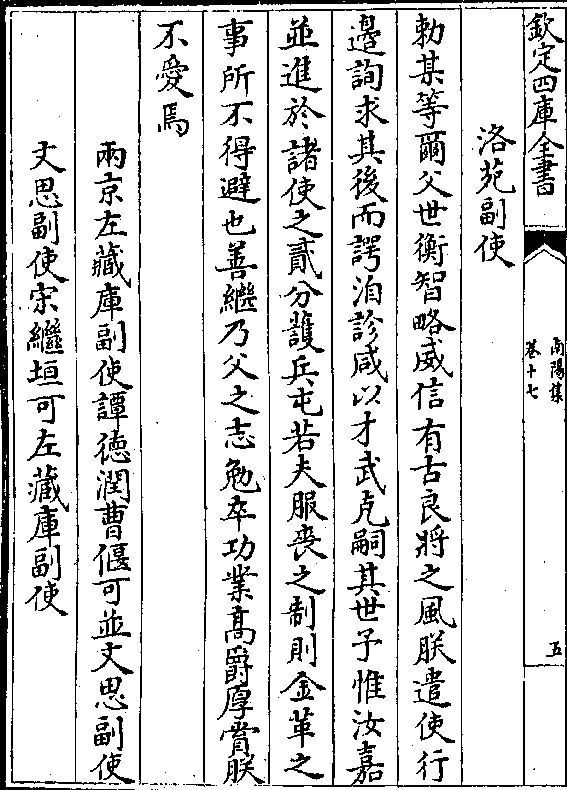 欽定四庫全書
南陽集
卷十七
五
洛苑副使
勅某等爾父世衡智略威信有古良將之風朕遣使行
邊詢求其後而諤洎診咸以才武克嗣其世予惟汝嘉
並進於諸使之貳分護兵屯若夫服喪之制則金革之
事所不得避也善繼乃父之志勉卒功業髙爵厚賞朕
不愛焉
兩京左藏庫副使譚德潤曹偃可並文思副使
文思副使宋繼垣可左藏庫副使